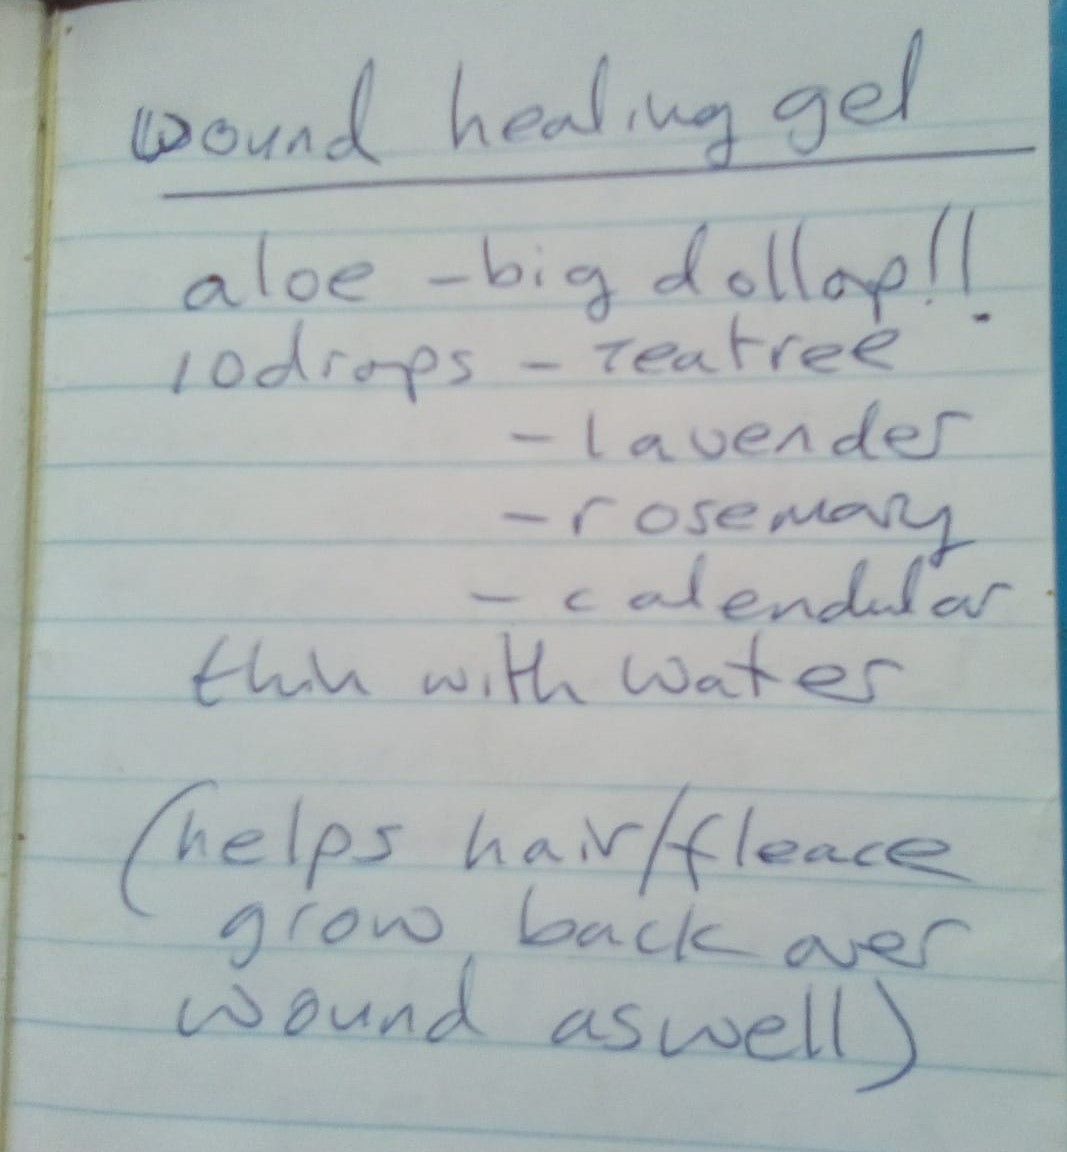 wound healing gel
aloe - big dollap!!
10 drops - Teatree
- lavender
- rosemary
- calendular
thin with water
(helps hair/fleace
grow back over
wound aswell)